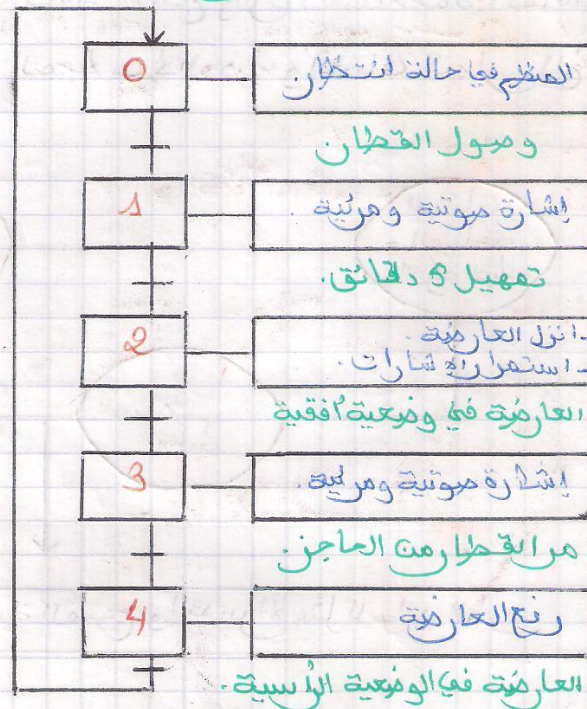 0
المنظم في حالة انتظار
وصول القطار
1
إشارة صوتية ومرئية.
تمهيل 5 دقائق.
2
-انزل العارضة.
-استمرار الإشارات.
العارضة في وضعية أفقية
3
إشارة صوتية ومرئية.
مر القطار من الحاجز.
4
رفع العارضة
العارضة في الوضعية الرأسية.